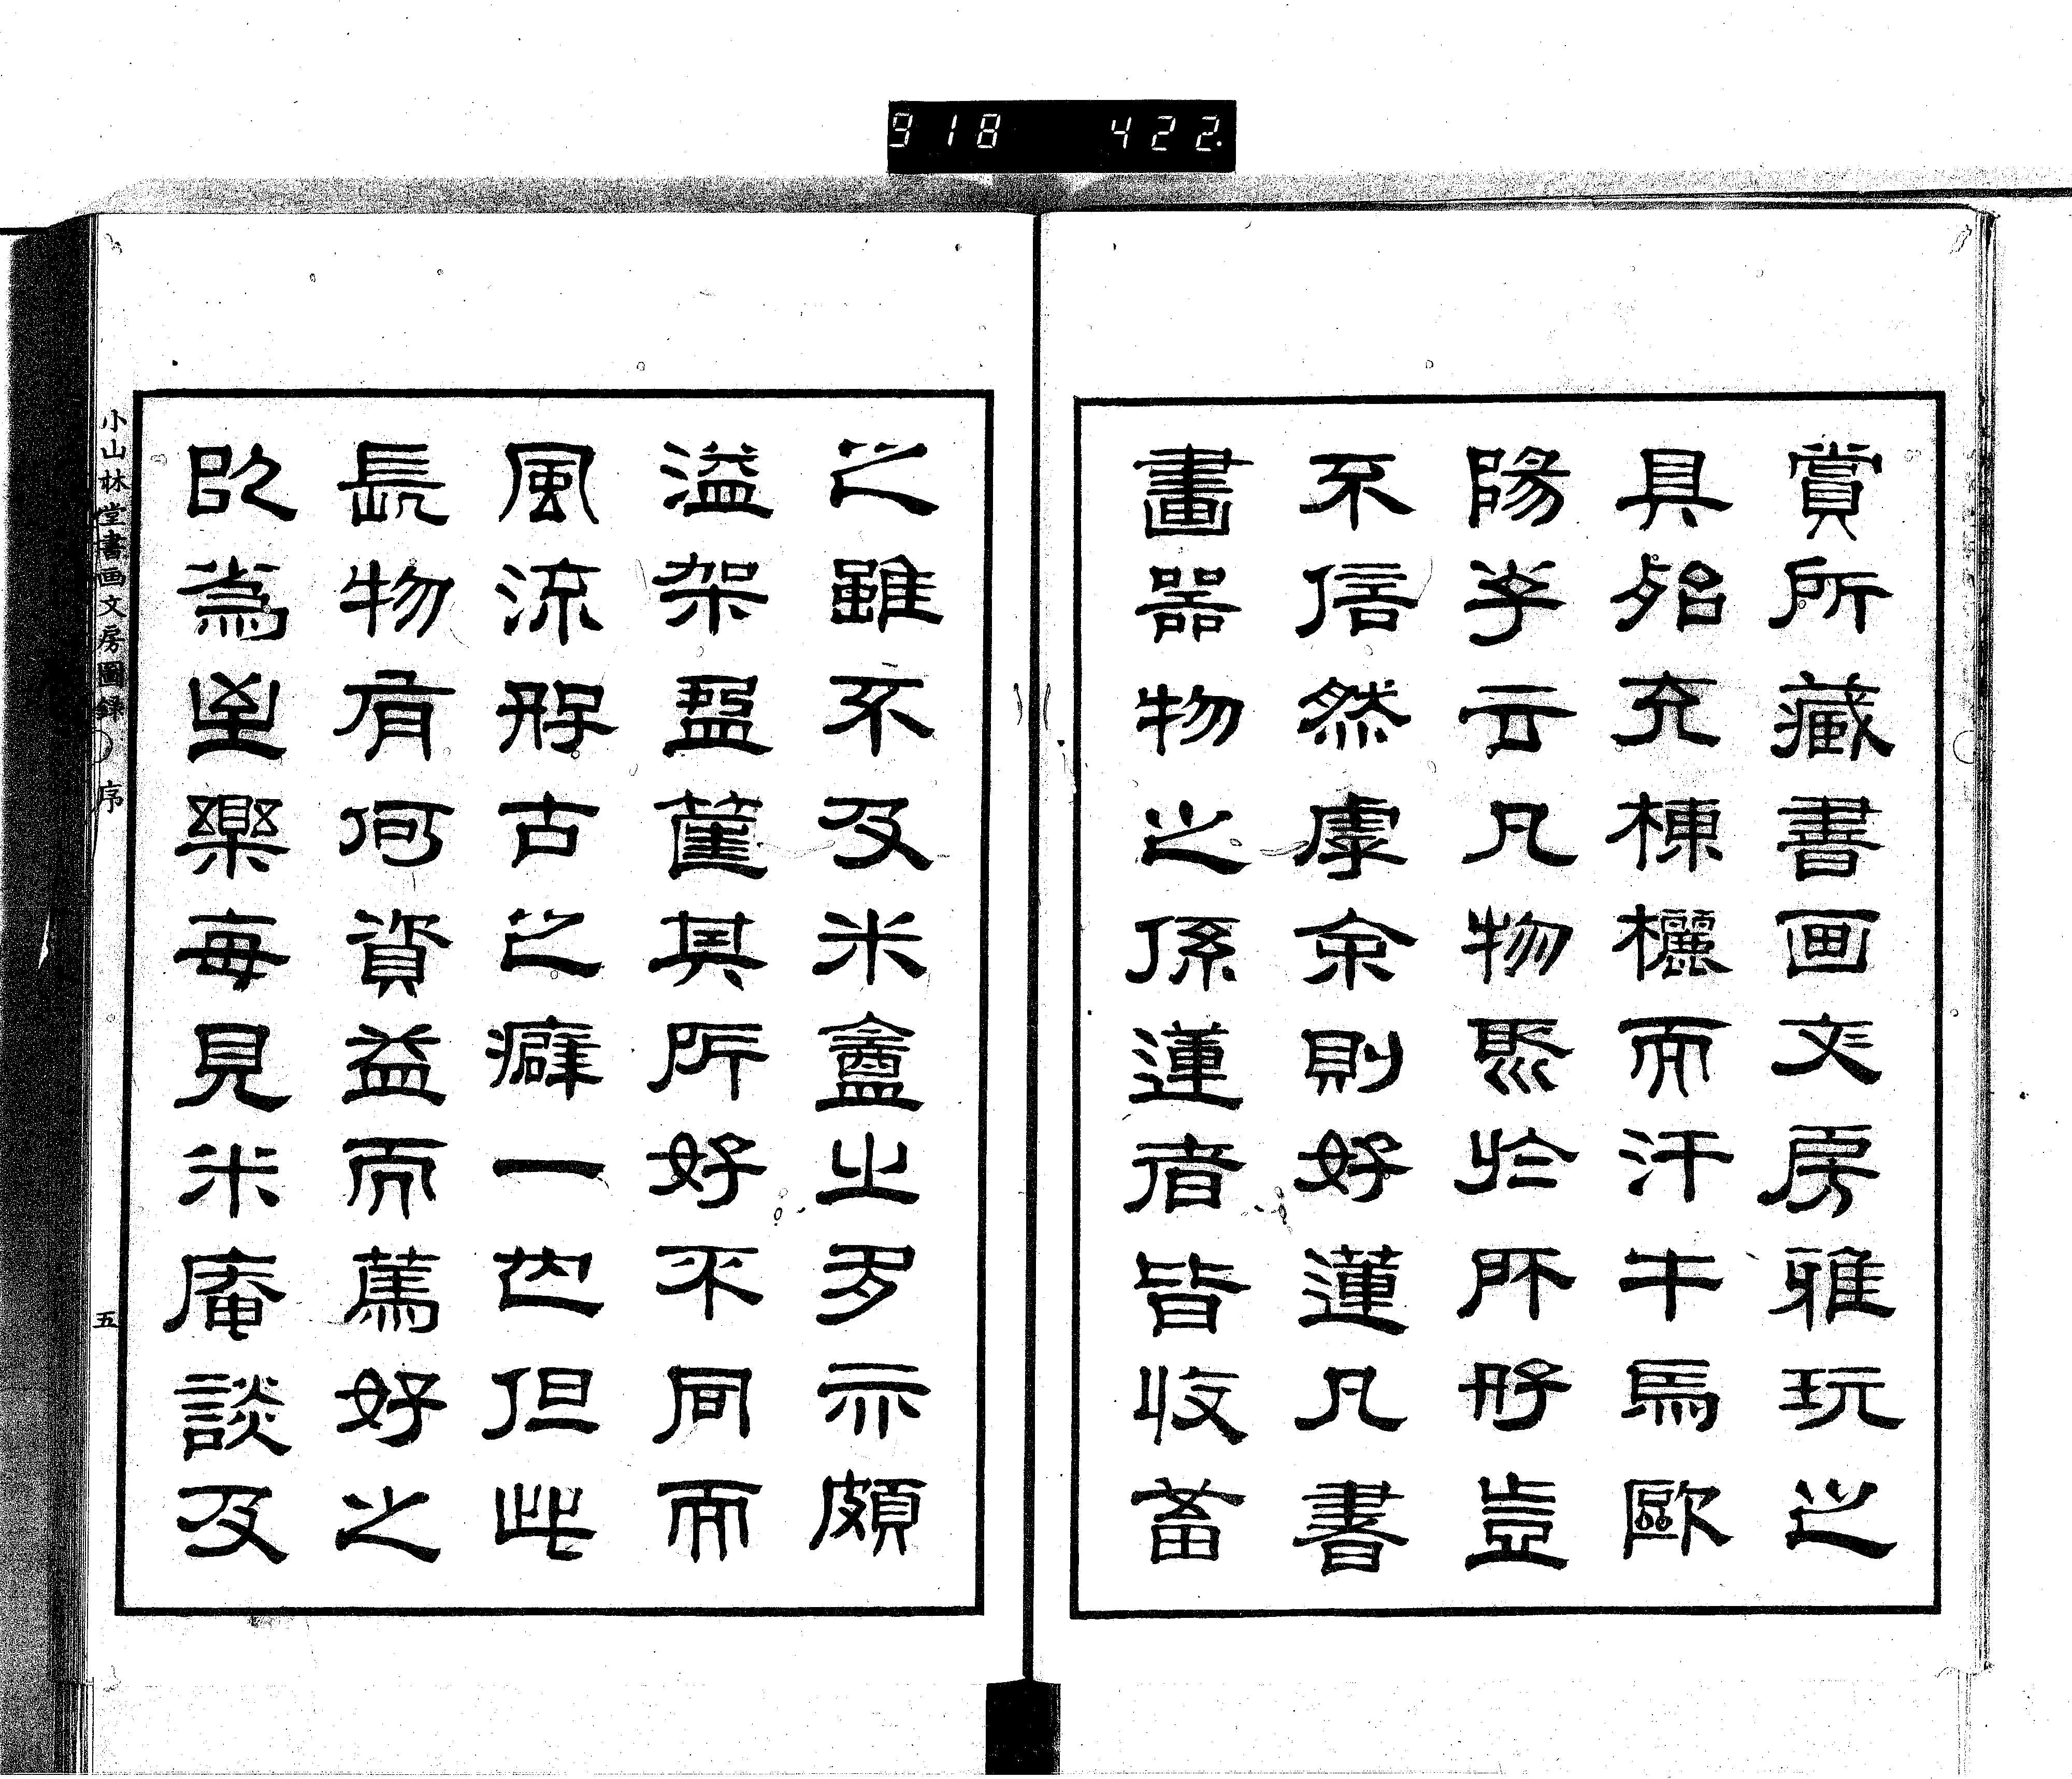 918 422.
賞所藏書画文房雅玩之
具殆充棟欐而汗牛焉歐
陽子云凡物聚於所好豈
不信然虖余則好蓮凡書
畫器物之係蓮者皆收畜
之雖不及米盦之多亦頗
溢架盈篋其所好不同而
風流好古之癖一也但此
長物有何資益而篤好之
以為至樂每見米庵談及
小山林堂書画文房圖録 序
五